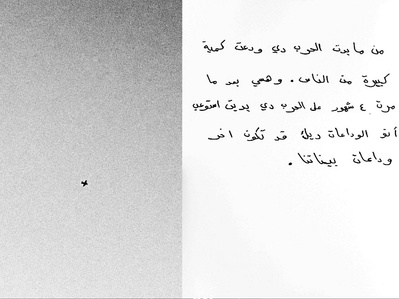 من ما بدت الحرب دي ودعت كمية
كبيرة من الناس . وهسي بعد ما
مرت ٤ شهور من الحرب دي بديت استوعب
أنو الوداعات ديك قد تكون اخر
وداعات بيناتنا .